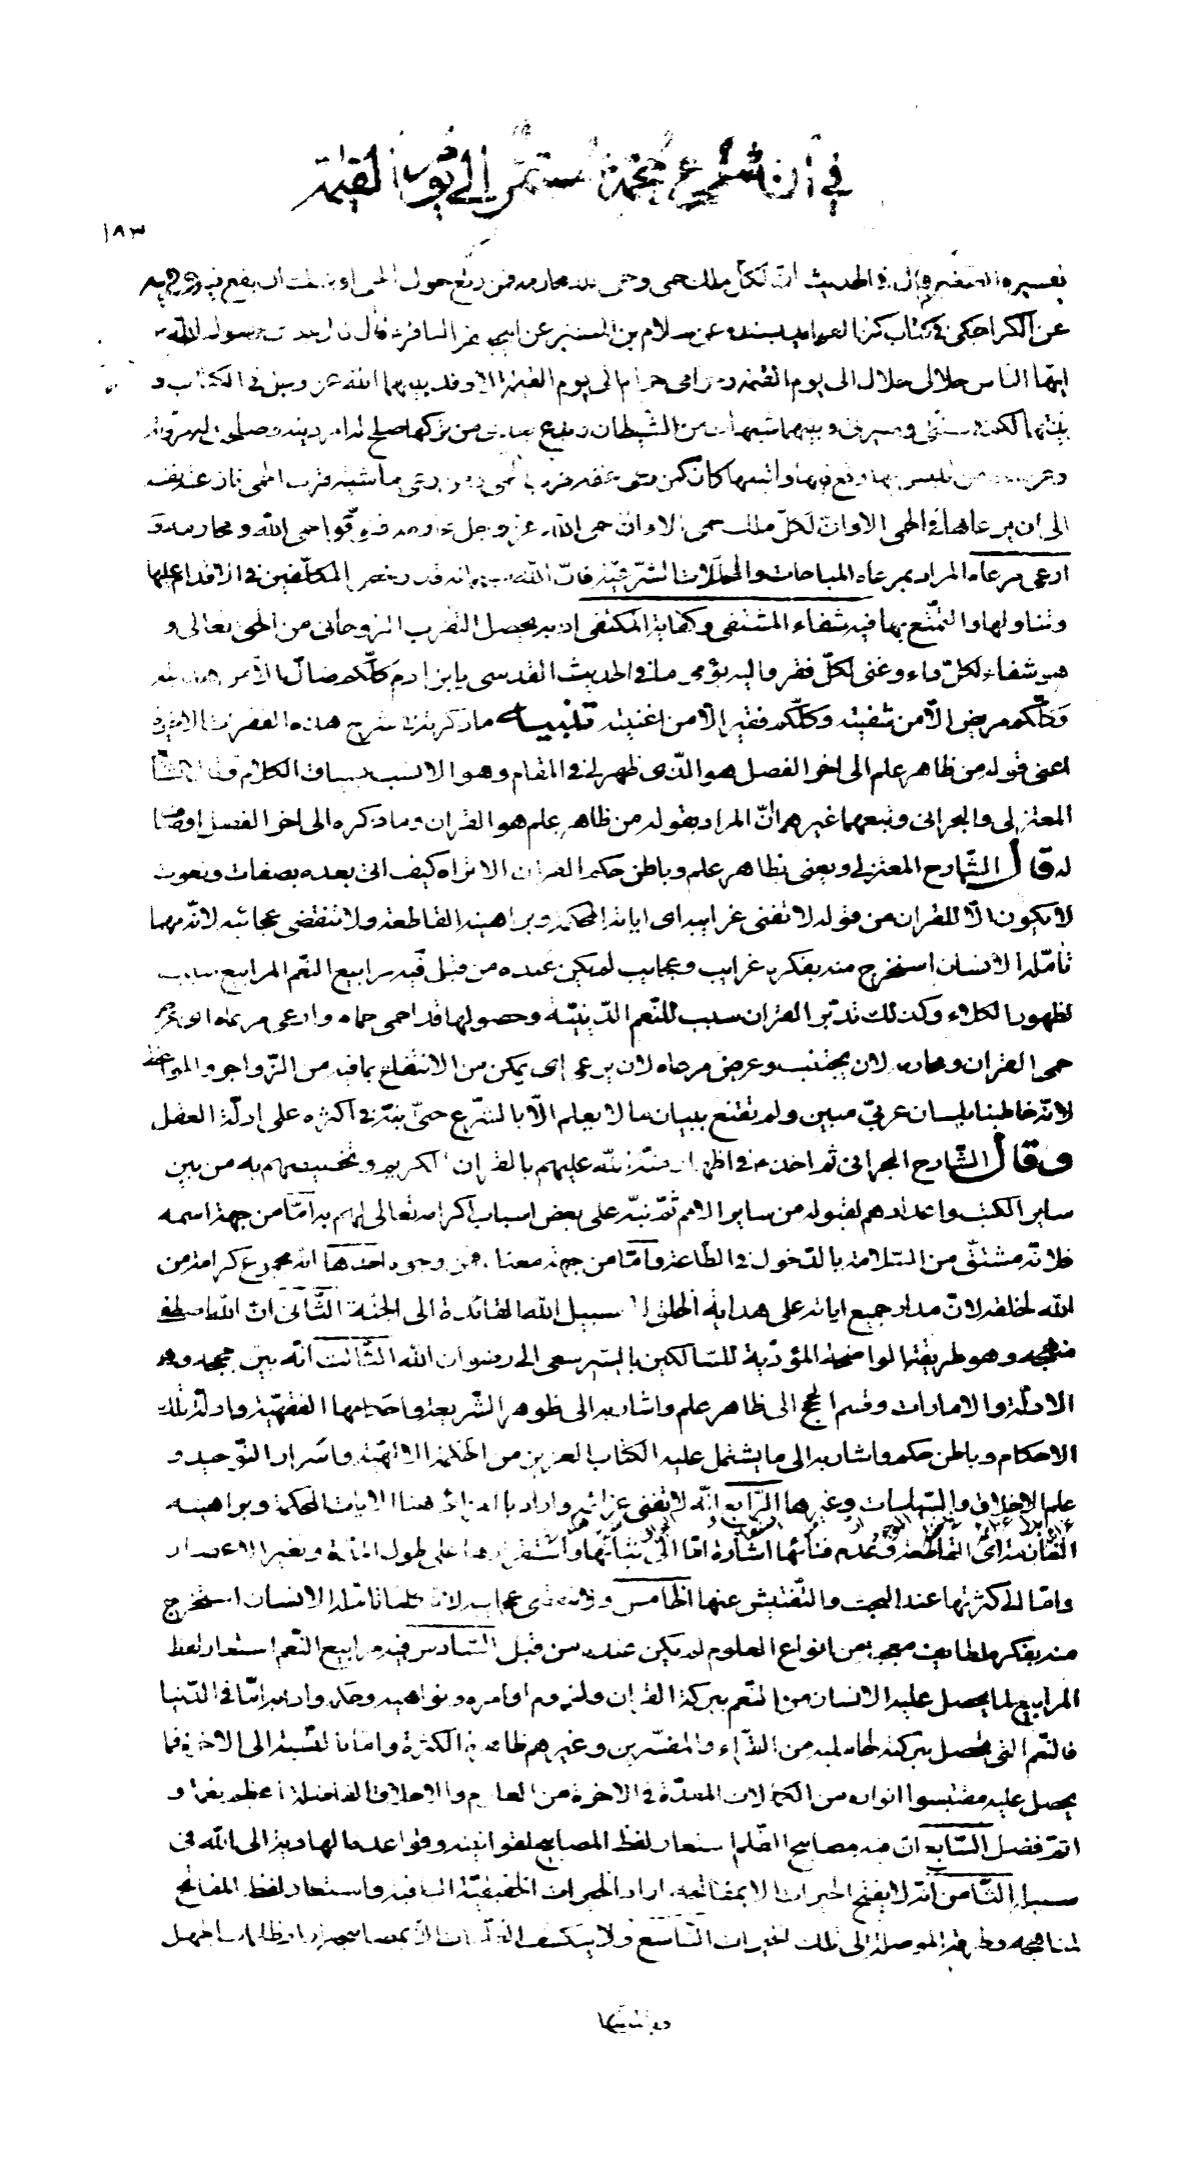 في ان شرع محمد مستمر إلى يوم القيمة
١٨٣
في الحديث انّ لكلّ ملك حمى وحمى الله محارمه فمن رتع حول الحمى اوشك ان يقع فيه
عن الكراجكى فى كتاب كنز الفوايد بسنده عن سلام بن المستنير عن ابي جعفر الباقر قال قال رسول الله
ايّها الناس حلالى حلال الى يوم القيمة وحرامى حرام الى يوم القيمة الا وقد بينهما الله عز وجل في الكتاب و
بيّنتهما لكم فى سنّتى وسيرتى وبينهما شبهات من الشّيطان وبدع بعدى من تركها صلح له امر دينه وصلحت له مروّته
وعرضه ومن تلبس بها وقع فيها واتبعها كان كمن رعى غنمه قرب الحمى ومن رعى ماشيته قرب الحمى نازعته نفسه
الى ان يرعاها فى الحمى الا وانّ لكلّ ملك حمى الا وانّ حمى الله عزّ وجلّ محارمه فتوقّوا حمى الله ومحارمه و
ارعى مرعاه المراد بمرعاه المباحات والمحلّلات الشّرعيّة فانّ الله سبحانه قد رخص المكلّفين في الاقدام عليها
وتناولها والتمتّع بها فيه شفاء المشتفى وكفاية المكتفى اذ به يحصل التقرب الرّوحانى من الحق تعالى و
هو شفاء لكلّ داء وغنى لكلّ فقر واليه يؤمى ما في الحديث القدسى يا بن ادم كلّكم ضالّ الاّ من هديته
وكلّكم مريض الّا من شفيته وكلّكم فقير الّا من اغنيته تنبيه ما ذكرته في شرح هذه الفقرات الاخيرة
اعنى قوله من ظاهر علم الى اخر الفصل هو الّذى ظهر لى فى المقام وهو الانسب بسياق الكلام وقال الشّارح
المعتزلى والبحرانى وتبعهما غيرهم انّ المراد بقوله من ظاهر علم هو القران وما ذكره الى اخر الفصل اوصاف
له قال الشّارح المعتزلى ويعنى بظاهر علم وباطن حكم القران الا تراه كيف اتى بعده بصفات ونعوت
لا يكون الّا للقران من قوله لا تفنى غرايبه اى اياته المحكمة وبراهينه القاطعة ولا تنقضى عجائبه لانّه مهما
تأمّله الانسان استخرج منه بفكره غرايب وعجايب لم يكن عنده من قبل فيه مرابيع النّعم المرابيع سبب
لظهور الكلاء وكذلك تدبّر القران سبب للنّعم الدّينيّة وحصولها قد احمى حماه وارعى مرعاه
حمى القران ومحارمه لان يجتنب وعرض مرعاه لان يرعى اى يمكن من الانتفاع بما فيه من الزّواجر والمواعظ
لانّه خاطبنا بلسان عربىّ مبين ولم تقنع ببيان ما لا يعلم الّا بالشّرع حتّى نبّه فى اكثره على ادلّة العقل
وقال الشّارح البحرانى ثم اخذ فى اظهار منّة الله عليهم بالقران الكريم وتخصيصهم به من بين
ساير الكتب واعدادهم لقبوله من ساير الامم ثمّ نبّه على بعض اسباب اكرامه تعالى لهم به امّا من جهة اسمه
فلانّه مشتقّ من السّلامة بالدّخول فى الطّاعة وامّا من جهة معناه فمن وجوه احدها انّه مجموع كرامة من
الله لخلقه لانّ مدار جميع اياته على هداية الخلق الى سبيل الله القائدة الى الجنّة الثّانى انّ الله اصطفى
منهجه وهو طريقته الواضحة المؤدّية للسّالكين بايسر سعى الى رضوان الله الثّالث انّه بيّن حججه وهى
الادلّة والامارات وقسم الحجج الى ظاهر علم واشار به الى ظواهر الشّريعة واحكامها الفقهيّة وادلّة تلك
الاحكام وباطن حكم واشار به الى ما يشتمل عليه الكتاب العزيز من الحكمة الالهيّة واسرار التّوحيد و
علم الاخلاق والسّياسات وغيرها الرّابع انّه لا تفنى غرائبه واراد بالغرايب هنا الايات المحكمة وبراهينه
القاطعة وعدم فنائها اشارة امّا الى ثباتها واستقرارها على طول المدّة وتغير الاعصار
وامّا الى كثرتها عند البحث والتّفتيش عنها الخامس ولا تنقضى عجايبه لانّه كلما تامّله الانسان استخرج
منه بفكره لطايف معجبة من انواع العلوم لم يكن عنده من قبل السّادس فيه مرابيع النّعم استعار لفظ
المرابيع لما يحصل عليه الانسان من النّعم ببركة القران ولزوم اوامره ونواهيه وحكمه وادابه امّا فى الدّنيا
فالنّعم التى تحصل ببركته لحامليه من القرّاء والمفسّرين وغيرهم ظاهرة الكثرة وامّا بالنّسبة الى الاخرة فما
يحصل عليه مقتبسوا انواره من الكمالات المعدّة فى الاخرة من العلوم والاخلاق الفاضلة اعظم نعمة و
اتمّ فضل السّابع انّ فيه مصابيح الظّلم استعار لفظ المصابيح لقوانينه وقواعده الهادية الى الله فى
سبيله الثّامن انّه لا يفتح الخيرات الا بمفاتحه اراد الخيرات الحقيقيّة الباقية واستعار لفظ المفاتح
لمناهجه وطرقه الموصلة الى تلك الخيرات التّاسع ولا ينكشف الظّلمات الّا بمصابيحه اراد ظلمات الجهل